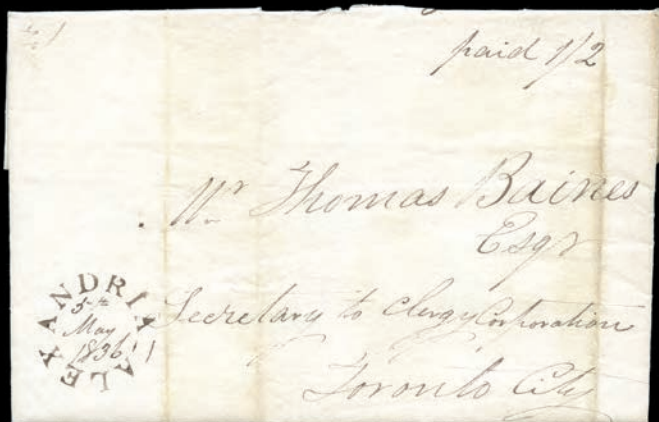 paid 1/2
Mr Thomas Baines
Esqr
Secretary to Clergy Corporation
Toronto City
ALEXANDRIA
5th
May
1836